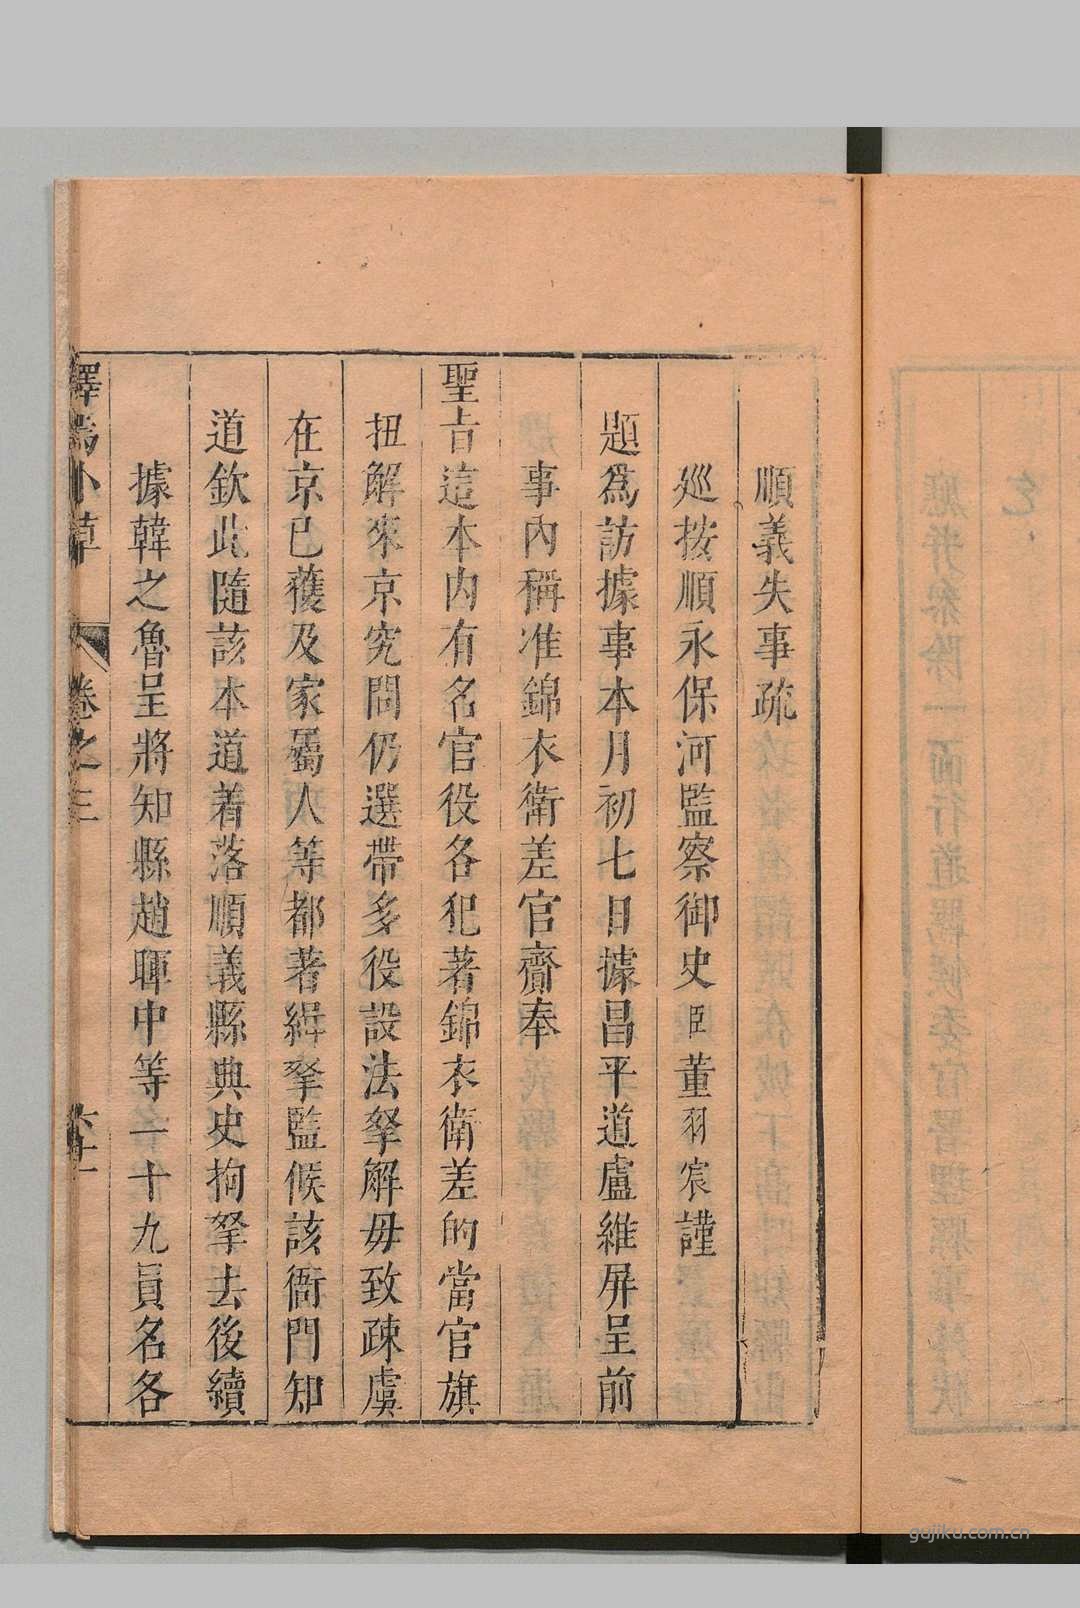 順義失事疏
廵按順永保河監察御史臣董羽宸謹
題爲訪據事本月初七日據昌平道盧維屏呈前
事內稱准錦衣衛差官齎奉
聖旨這本內有名官役各犯著錦衣衛差的當官旗
扭解來京究問仍選帶多役設法拏解毋致疎虞
在京已獲及家屬人等都著緝拏監候該衙門知
道欽此隨該本道着落順義縣典史拘拏去後續
據韓之魯呈將知縣趙暉中等一十九員名各
卷之三
gujiku.com.cn